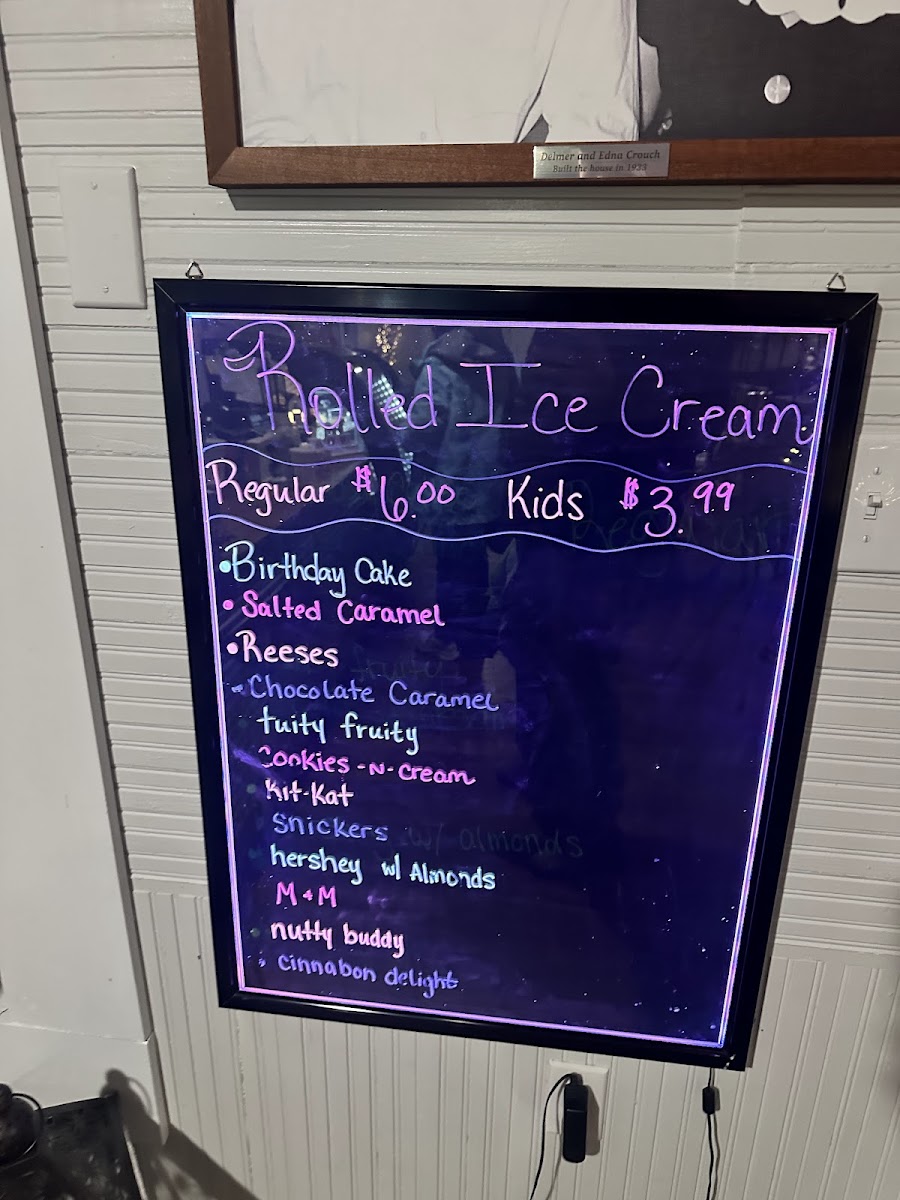 Delmer and Edna Crouch
Built the house in 1923
Rolled Ice Cream
Regular $6.00 Kids $3.99
• Birthday Cake
• Salted Caramel
• Reeses
• Chocolate Caramel
tuity fruity
Cookies -N- Cream
Kit-Kat
Snickers
hershey w/ Almonds
M + M
nutty buddy
• cinnabon delight